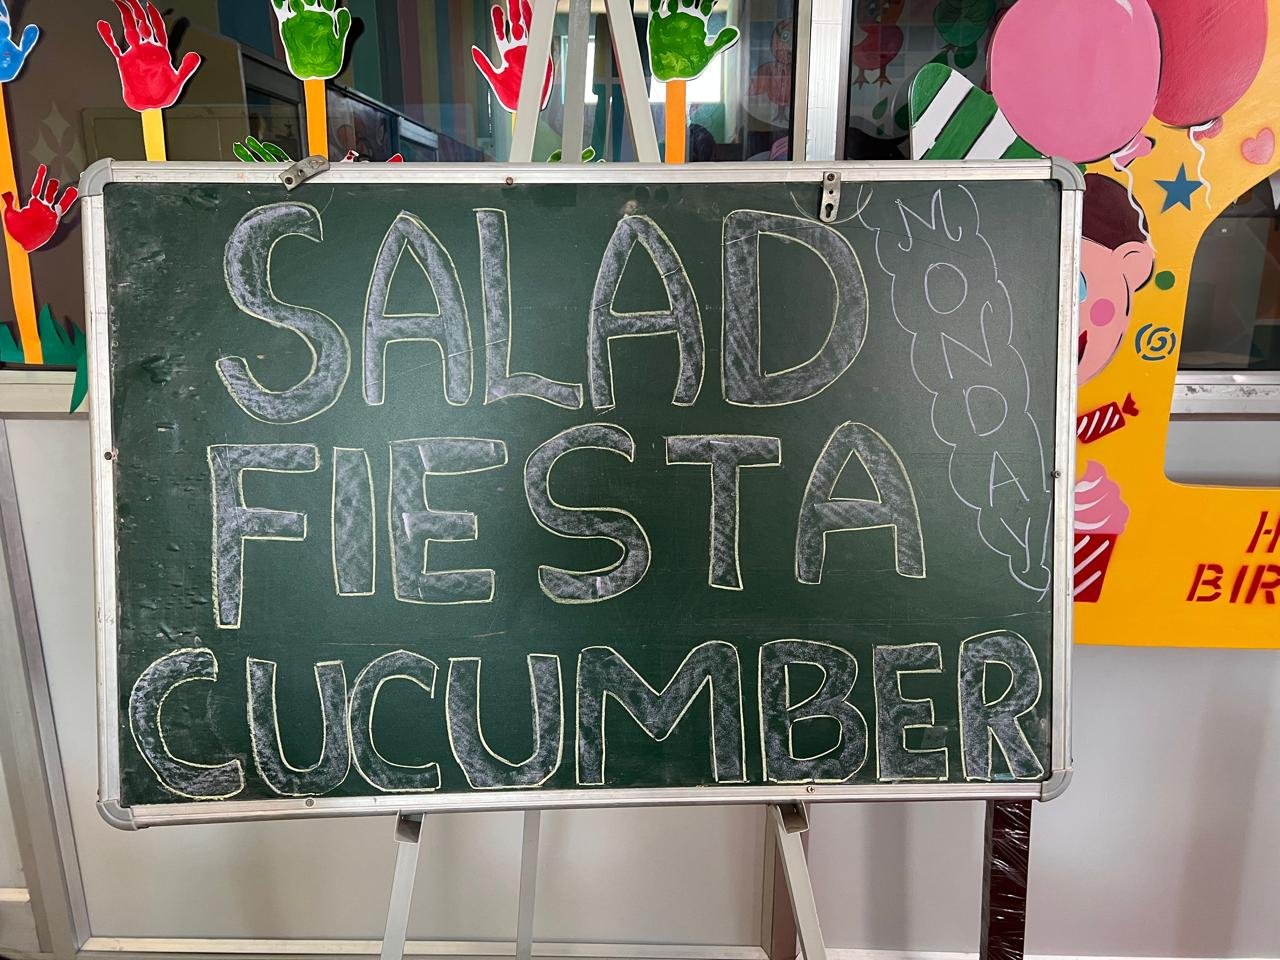 SALAD
FIESTA
CUCUMBER
MONDAY
H
BIR